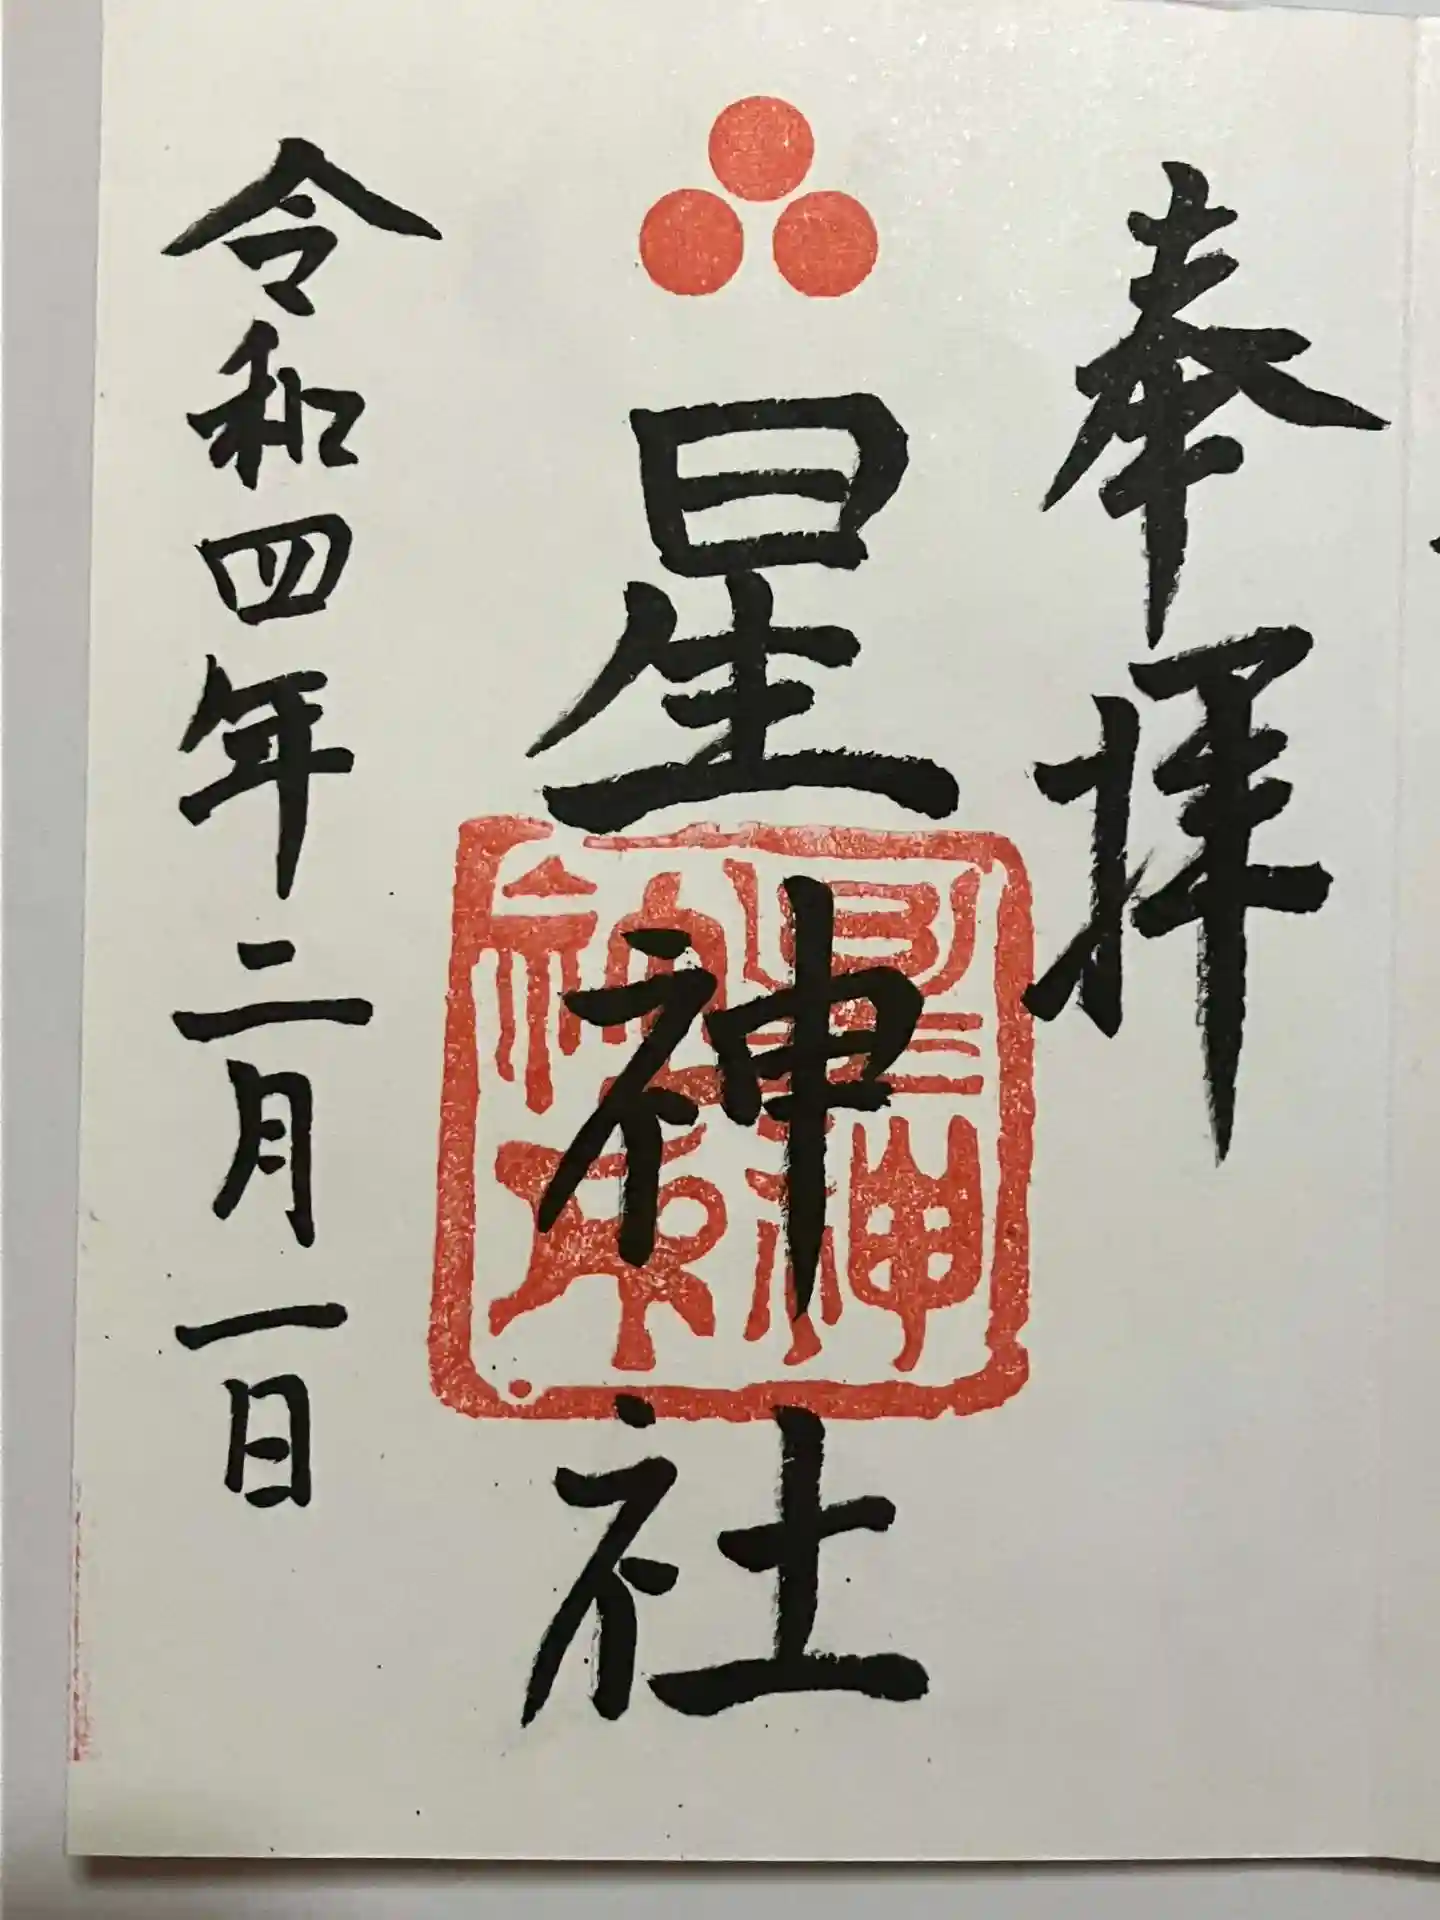 奉拝
星神社
令和四年二月一日